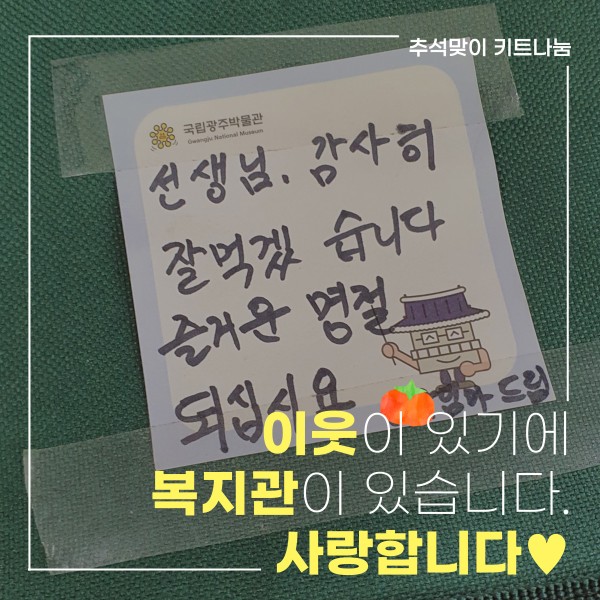 추석맞이 키트나눔
국립광주박물관
Gwangju National Museum
선생님. 감사히
잘먹겠 습니다
즐거운 명절
되십시요
드림
이웃이 있기에
복지관이 있습니다.
사랑합니다♥